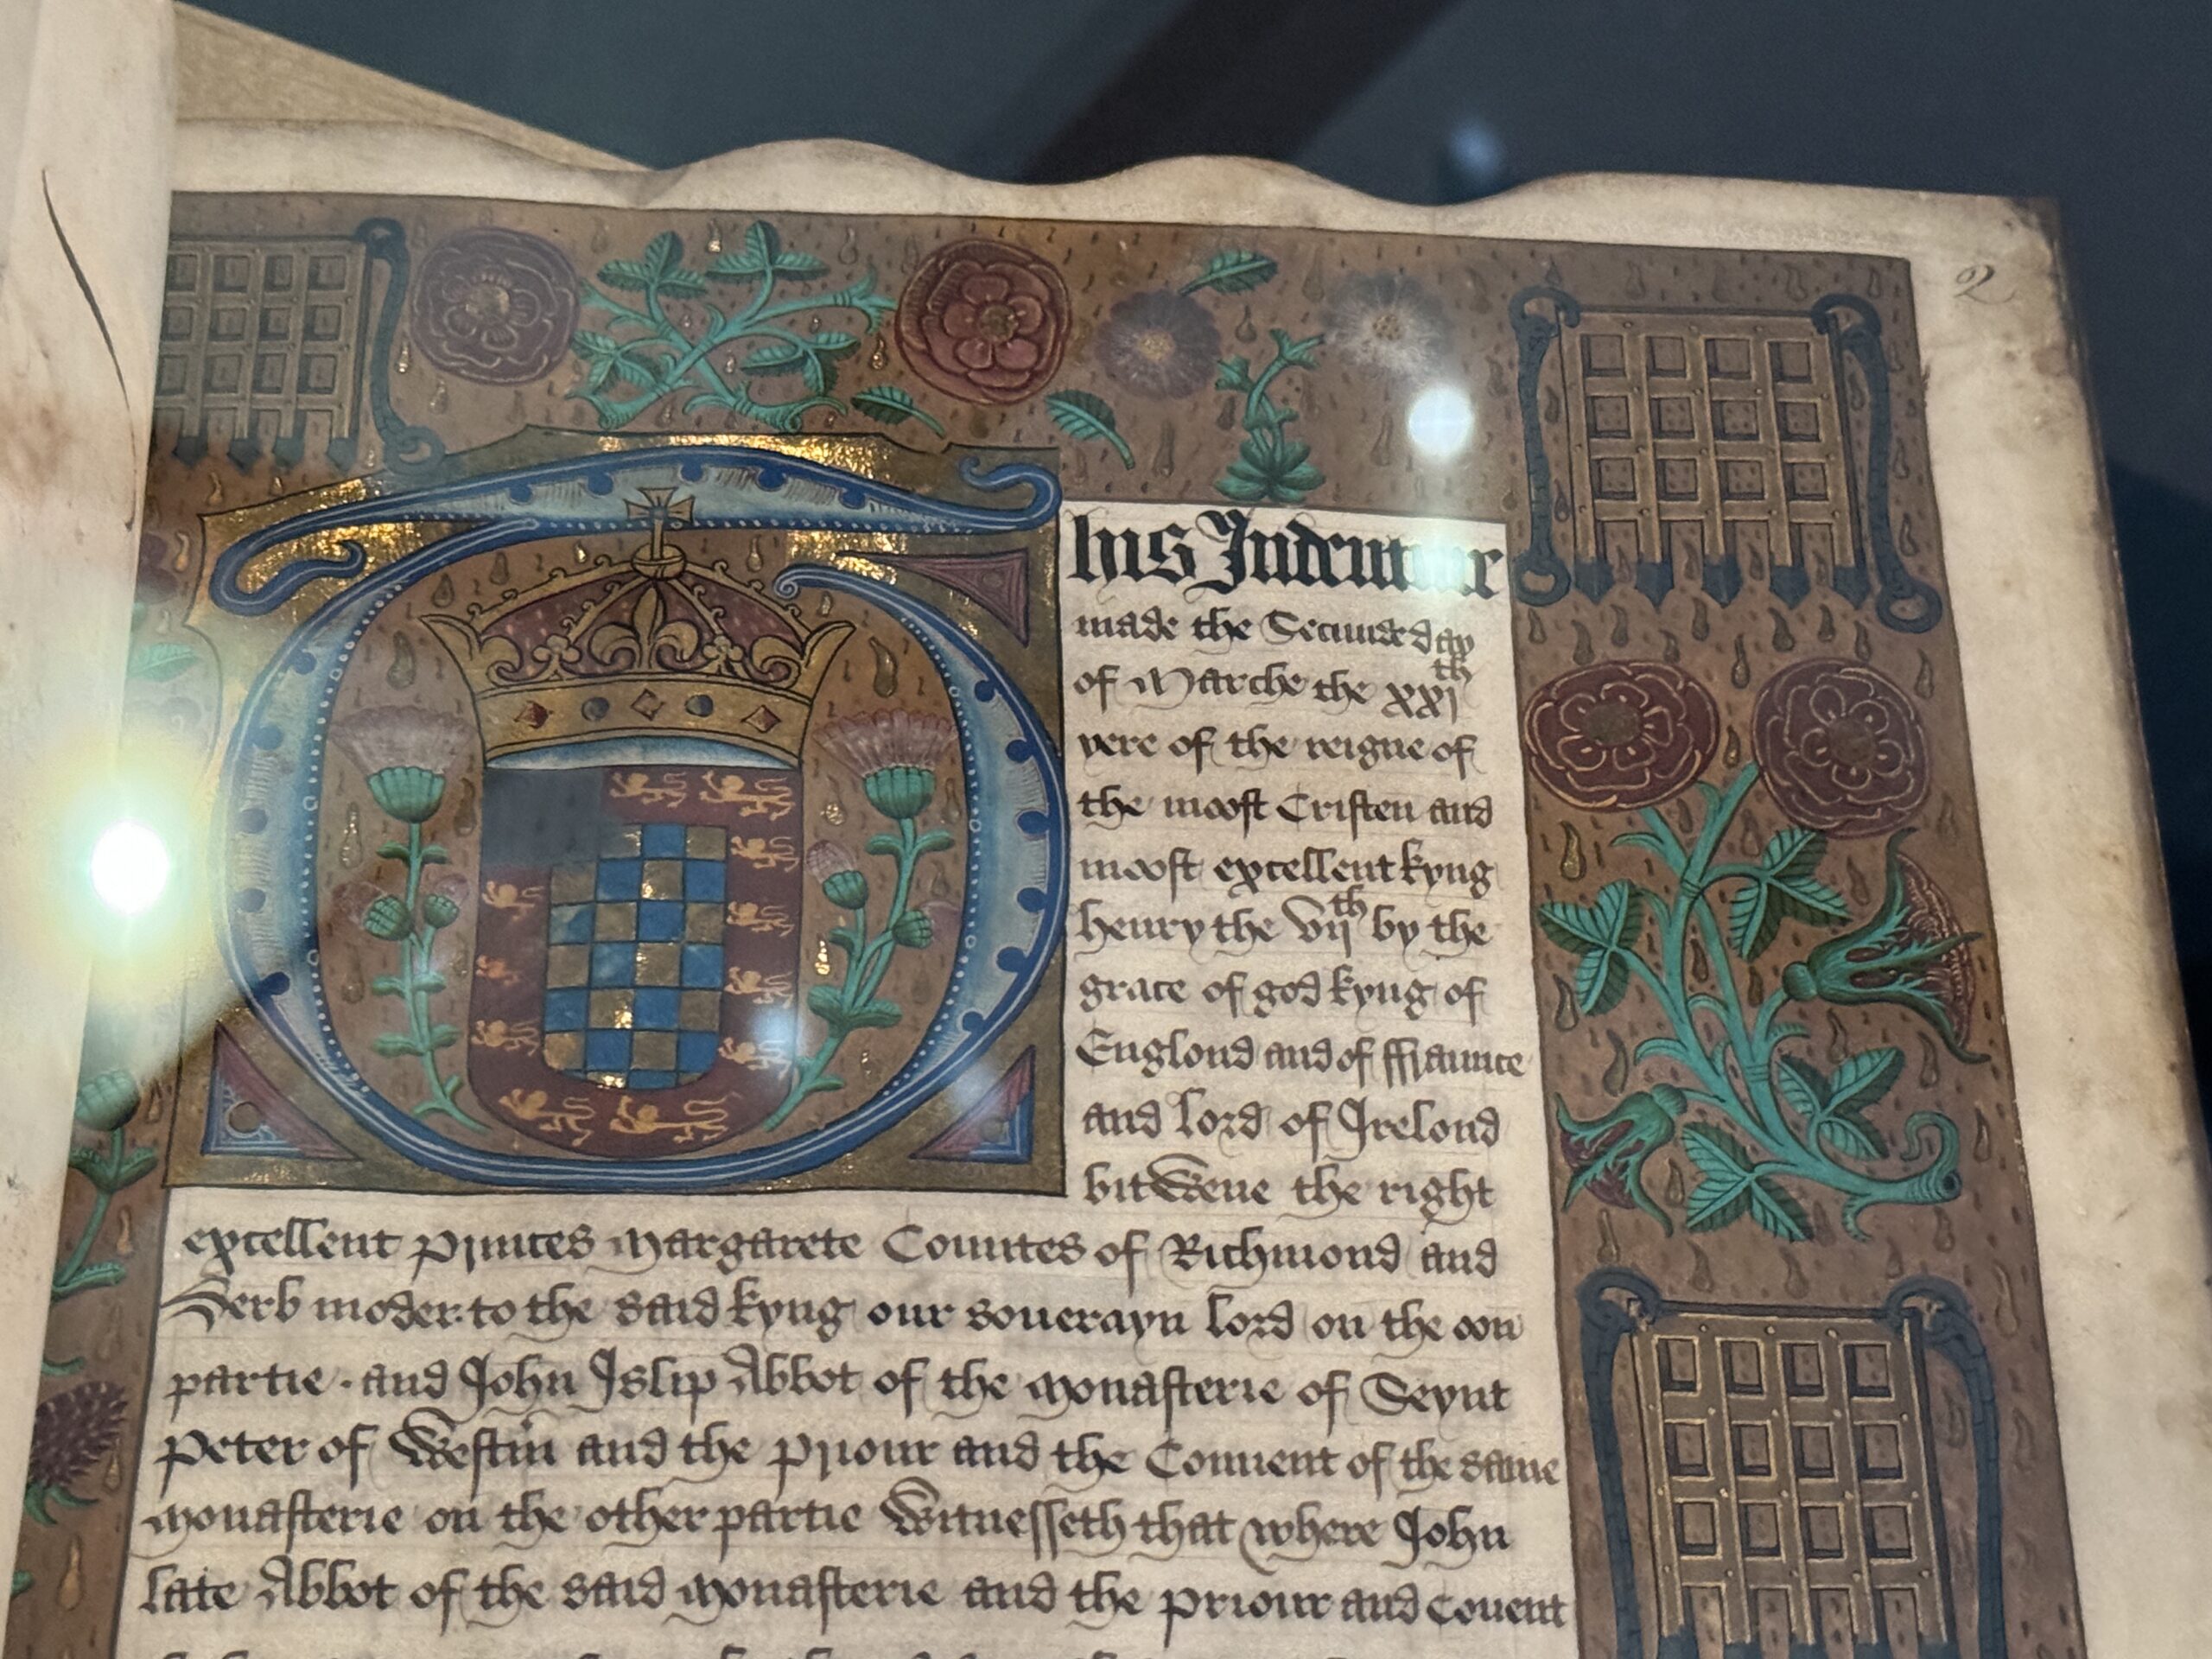 2
This Indenture
made the Secunde day
of Marche the xxj th
yere of the reigne of
the moost Cristen and
moost excellent kyng
henry the vij th by the
grace of god kyng of
Englond and of ffraunce
and lord of Irelond
bitwene the right
excellent princes Margarete Countes of Richmond and
Derb moder to the said kyng our souerayn lord on the oon
partie . and John Islip Abbot of the monasterie of Seynt
Peter of Westm and the priour and the Conuent of the same
monasterie on the other partie Witnesseth that where John
late Abbot of the said monasterie and the priour and Couent